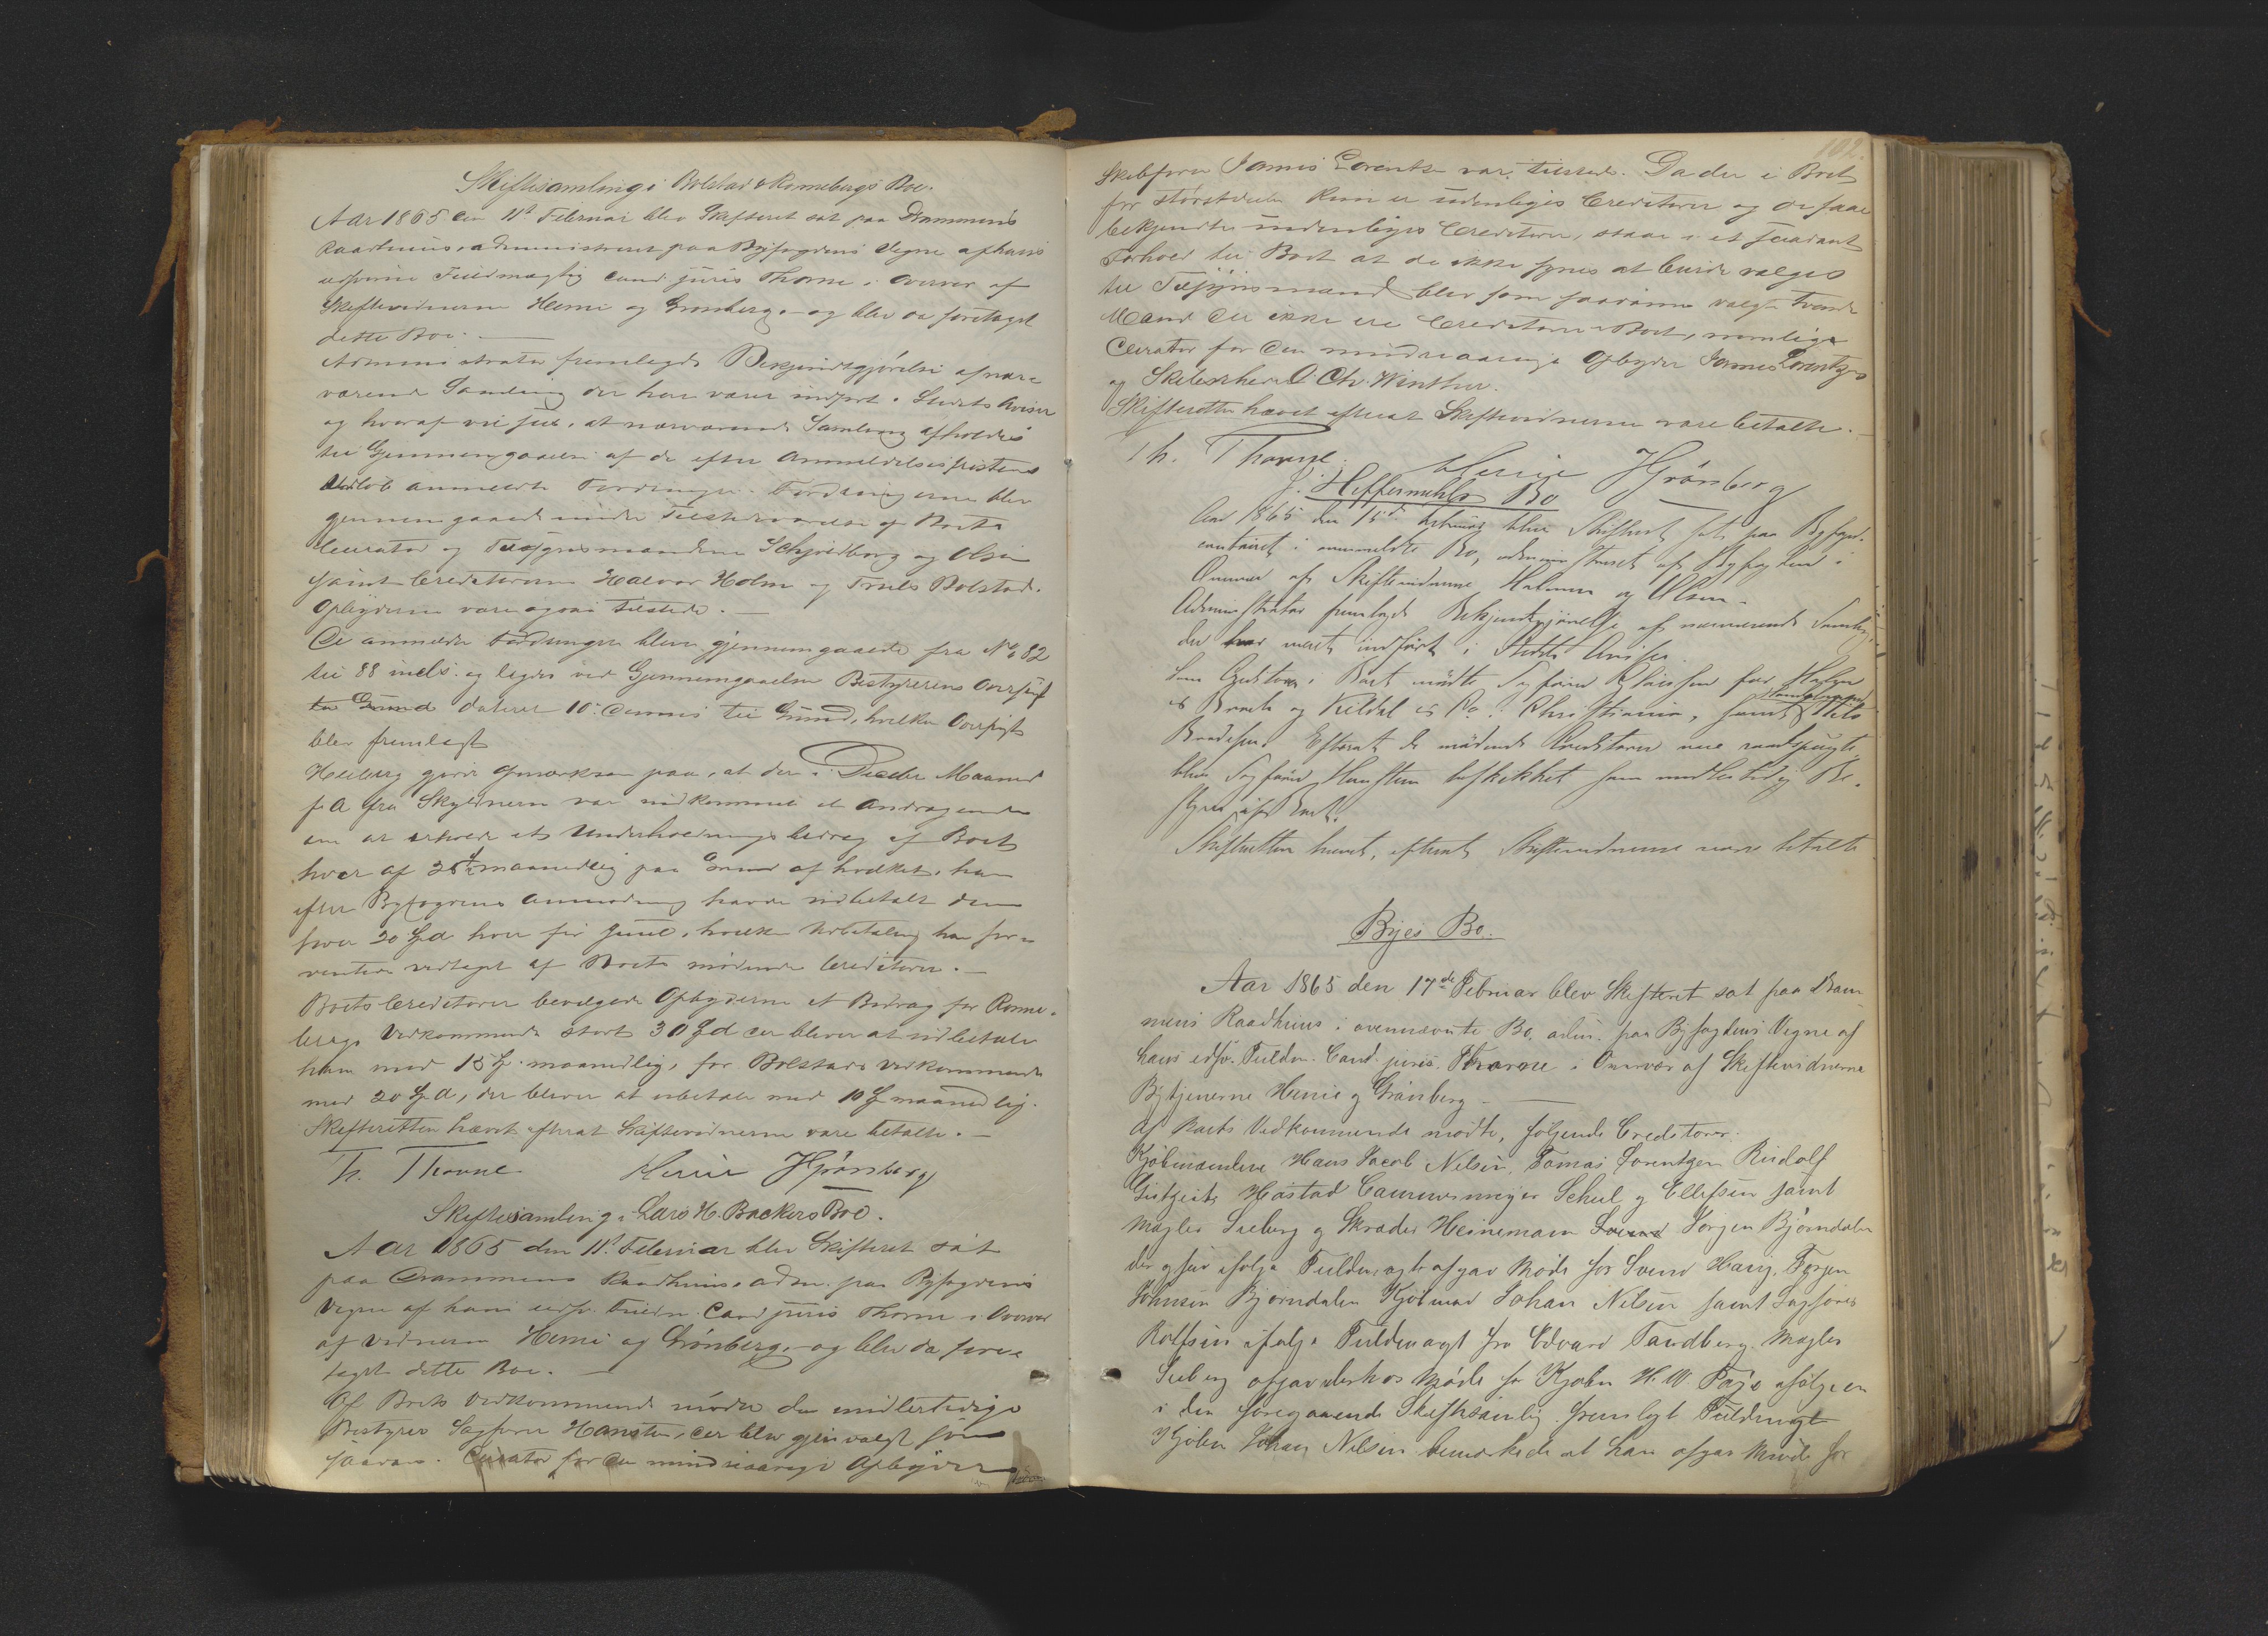 Skiftesamling i Bolstad & Ronnebergs Boe.
Aar 1865 den 11t Februar blev Skifteret sat paa Drammens
Raadhuus, administreret paa Byfogdens Vegne af hans
edsvorne Fuldmægtig cand. juris Thorne i Overvær af
Skiftevidnerne Hennie og Grønberg – og blev da foretaget
dette Boe. —
Administrator fremlagde Bekjendtgjørelse af nær-
værende Samling der har været indført i Stedets Aviser
og hvoraf vil sees, at nærværende Samling afholdes
til Gjennemgaaelse af de efter Anmeldelsesfristens
Udløb anmeldte Fordringer. Fordringerne blev
gjennemgaaede under Tilstedeværelse af Boets
Curator og Tilsynsmændene Schjoldborg og Olsen
samt Creditorerne Halvor Holm og Truls Bolstad.
Opbyderne vare ogsaa tilstede. —
De anmeldte Fordringer bleve gjennemgaaede fra No 82
til 88 incls. og lagdes ved Gjennemgaaelsen Bestyrerens Oversigt
dateret 10. dennes til Grund, hvilken Oversigt
blev fremlagt
Heiberg gjorde opmærksom paa, at der i Decbr Maaned
f A fra Skyldnerne var indkommet et Andragende
om at erholde et Underholdningsbidrag af Boet
hver af 25 maanedlig paa Grund af hvilket, han
efter Byfogdens Anmodning havde udbetalt dem
hver 20 Spd hver før Juul, hvilken Udbetaling han for-
ventede vedtaget af Boets mødende Creditorer. —
Boets Creditorer bevilgede Opbyderne et Bidrag for Ronne-
bergs Vedkommende stort 30 Spd der bliver at udbetale
ham med 15 Sp. maanedlig, for Bolstads Vedkommende
med 20 Spd, der bliver at udbetale med 10 Sp maanedlig.
Skifteretten hævet efterat Skiftevidnerne vare betalte. —
Th. Thorne Hennie HGrönberg
Skiftesamling i Lars H. Backers Boe.
Aar 1865 den 11t Februar blev Skifteret sat
paa Drammens Raadhuus, adm. paa Byfogdens
Vegne af hans edsv. Fuldm. Cand juris Thorne i Overvær
af Vidnerne Hennie og Grönberg – og blev da fore-
taget dette Boe. —
Af Boets Vedkommende mødte den midlertidige
Bestyrer Sagfører Hansten, der blev gjenvalgt som
saadan. Curator for den mindreaarige Opbyder
102.
Skibsfører Jamis Lorentzen var tilstede. Da der i Boet
for störstedelen kun er udenbyes Creditorer og de faae
bekjendte indenbyes Creditorer, staae i et saadant
Forhold til Boet at de ikke synes at burde vælges
til Tilsynsmænd blev som saadanne valgt tvende
Mænd der ikke ere Creditorer i Boet, nemlig
Curator for den mindreaarige Opbyder Jamis Lorentzen
og Skibsrheder O Chr. Winther.
Skifteretten hævet efterat Skiftevidnerne vare betalte. —
Th. Thorne. Hennie HGrönberg
J. Heffermehls Bo
Aar 1865 den 15de Februar blev Skifteret sat paa Byfogd-
contoiret i anmeldte Bo, administreret af Byfogden i
Overvær af Skiftevidnerne Halvorsen og Olsen. –
Administrator fremlagde Bekjendtgjørelse af nærværende Samling,
der har været indført i Stedets Aviser.
Som Creditorer i Boet mødte Sagfører Klaussen for
& Broch og Kildal & Co. Christiania, samt Handelsmand Nils
Bredesen. Efterat de mødende Creditorer vare raadspurgte,
blev Sagfører Hansten beskikket som midlertidig Be-
styrer af Boet.
Skifteretten hævet, efterat Skiftevidnerne vare betalte
Byes Bo.
Aar 1865 den 17de Februar blev Skifteret sat paa Dram-
mens Raadhuus i ovennævnte Bo, adm. paa Byfogdens Vegne af
hans edsv. Fuldm. Cand. juris. Thorne i Overvær af Skiftevidnerne
Bytjenerne Hennie og Grönberg —
Af Boets Vedkommende mödte, følgende Creditorer:
Kjöbmændene Hans Jacob Nilsen, Tomas Lorentzen Rudolf
Gutzeit, Hastad Cammermeyer Schul og Ellefsen samt
Mægler Sieberg og Skræder Heinemann Jörgen Björndalen
der ogsaa ifølge Fuldmagt afgav Möde for Svend Haug, Jörgen
Johnsen Bjorndalen Kjöbmd Johan Nilsen samt Sagförer
Rolfsen ifølge Fuldmagt fra Edvard Tandberg. Mægler
Sieberg afgav derhos Möde for Kjøbm H. W. Fajo ifølge en
i den foregaaende Skiftesamling fremlagt Fuldmagt
Kjöbm Johan Nilsen bemærkede at han afgav Möde for